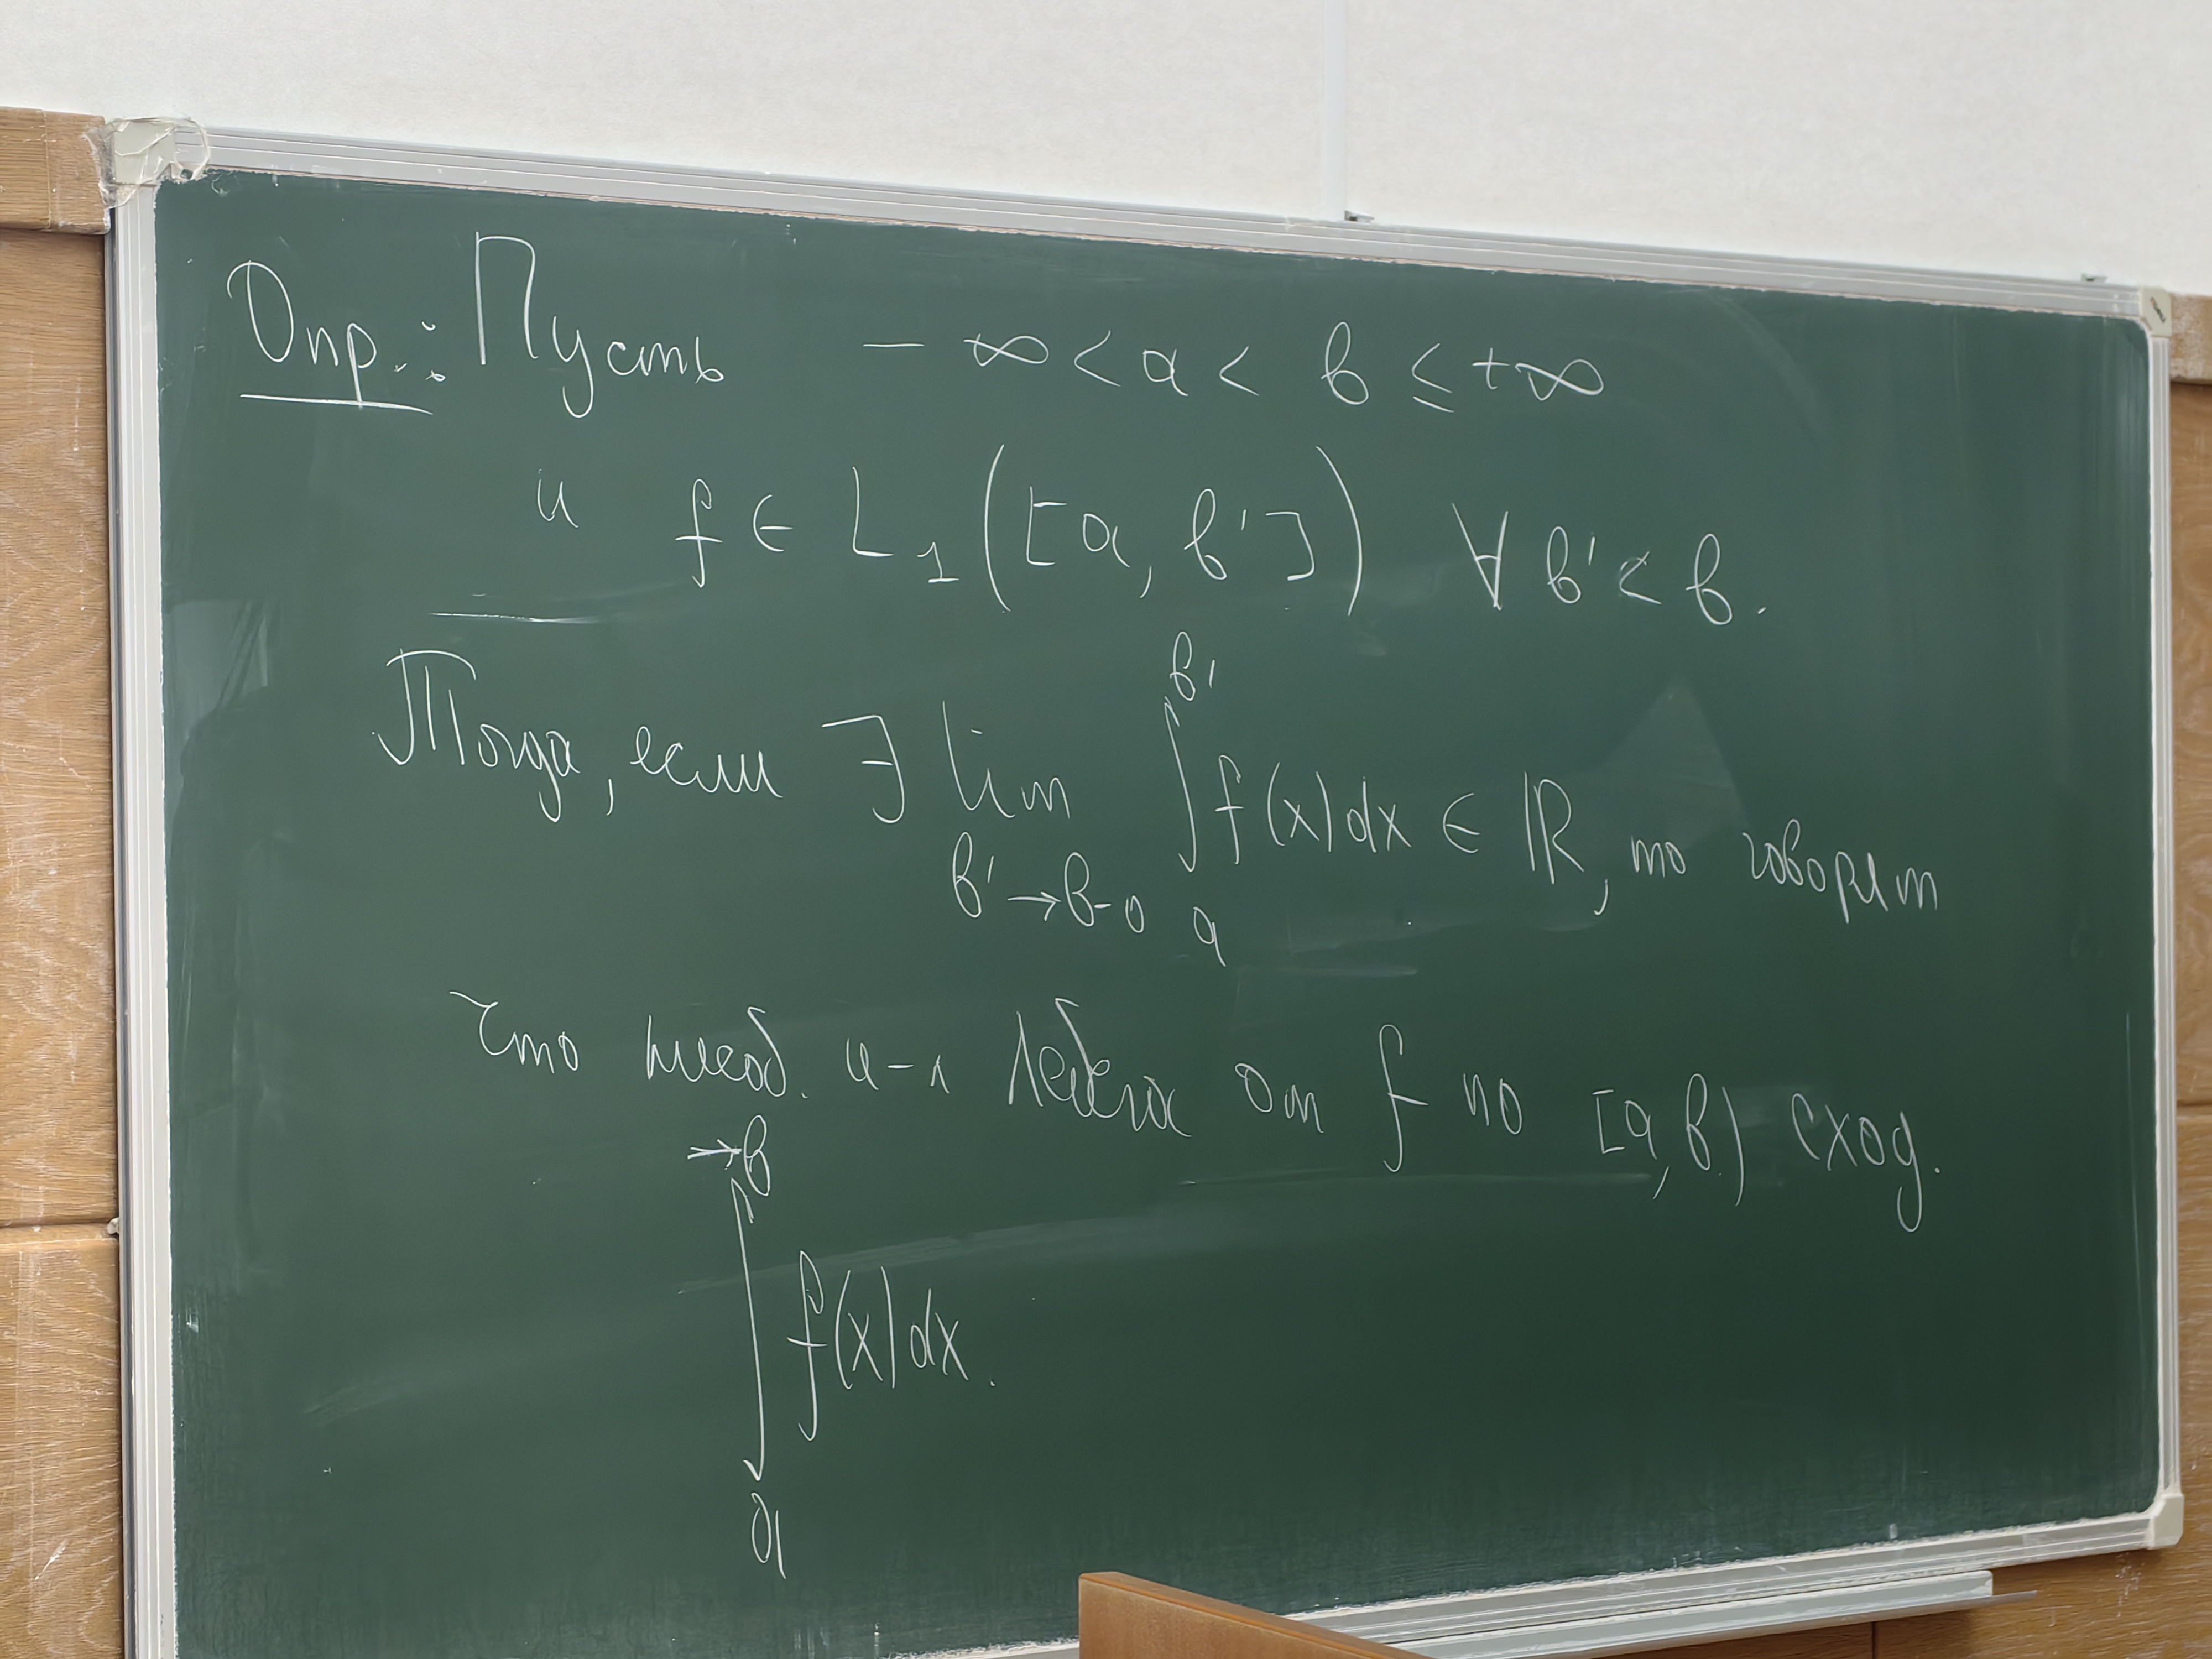 Опр.: Пусть −∞ < a < b ≤ +∞
и f ∈ L₁([a, b']) ∀ b' < b.
Тогда, если ∃ lim_{b'→b-0} ∫_a^{b'} f(x)dx ∈ ℝ, то говорят
что несоб. и-л Лебега от f по [a,b) сход.
∫_a^{→b} f(x)dx.